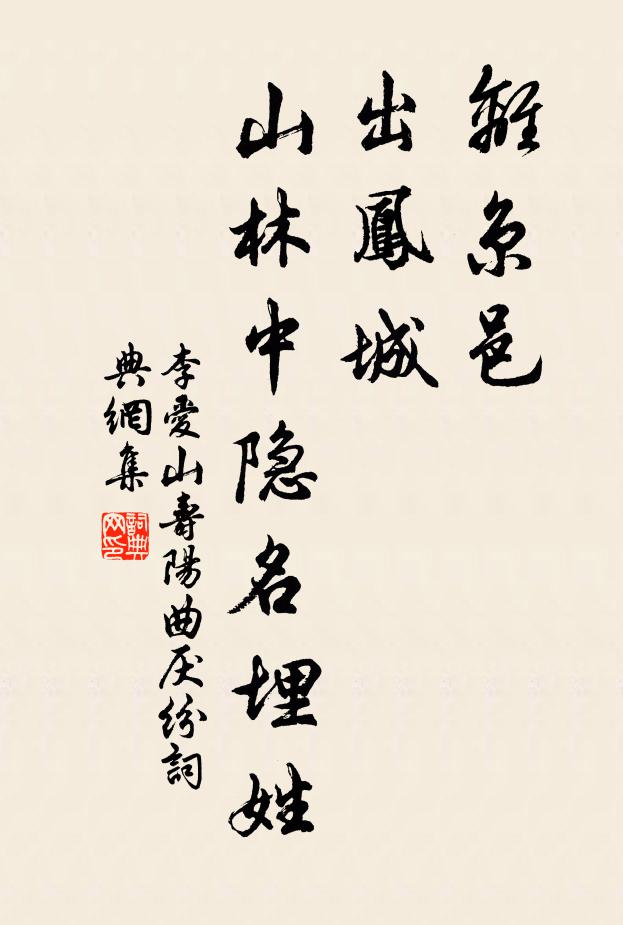 離京邑
出鳳城
山林中隐名埋姓
李愛山壽陽曲厌纷詞
典網集
詞典網印